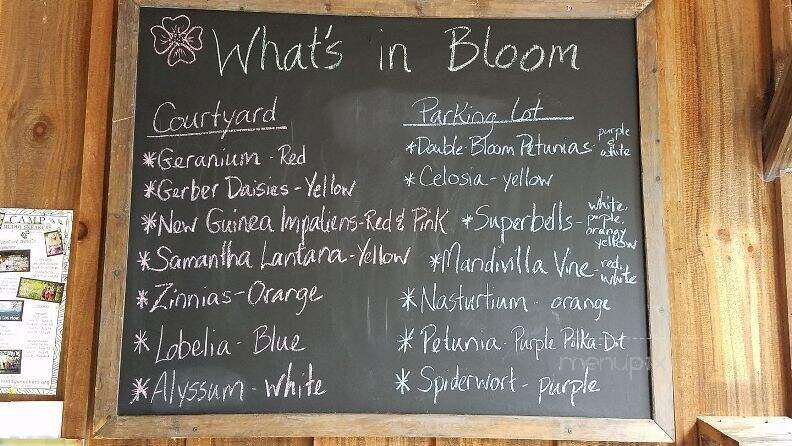 What's in Bloom
Courtyard
*Geranium - Red
*Gerber Daisies - Yellow
*New Guinea Impatiens - Red & Pink
*Samantha Lantana - Yellow
*Zinnias - Orange
*Lobelia - Blue
*Alyssum - White
Parking Lot
*Double Bloom Petunias - purple & white
*Celosia - yellow
*Superbells - white, purple, orangy yellow
*Mandivilla Vine - red, white
*Nasturtium - orange
*Petunia - Purple Polka-Dot
*Spiderwort - purple
CAMP
menupix